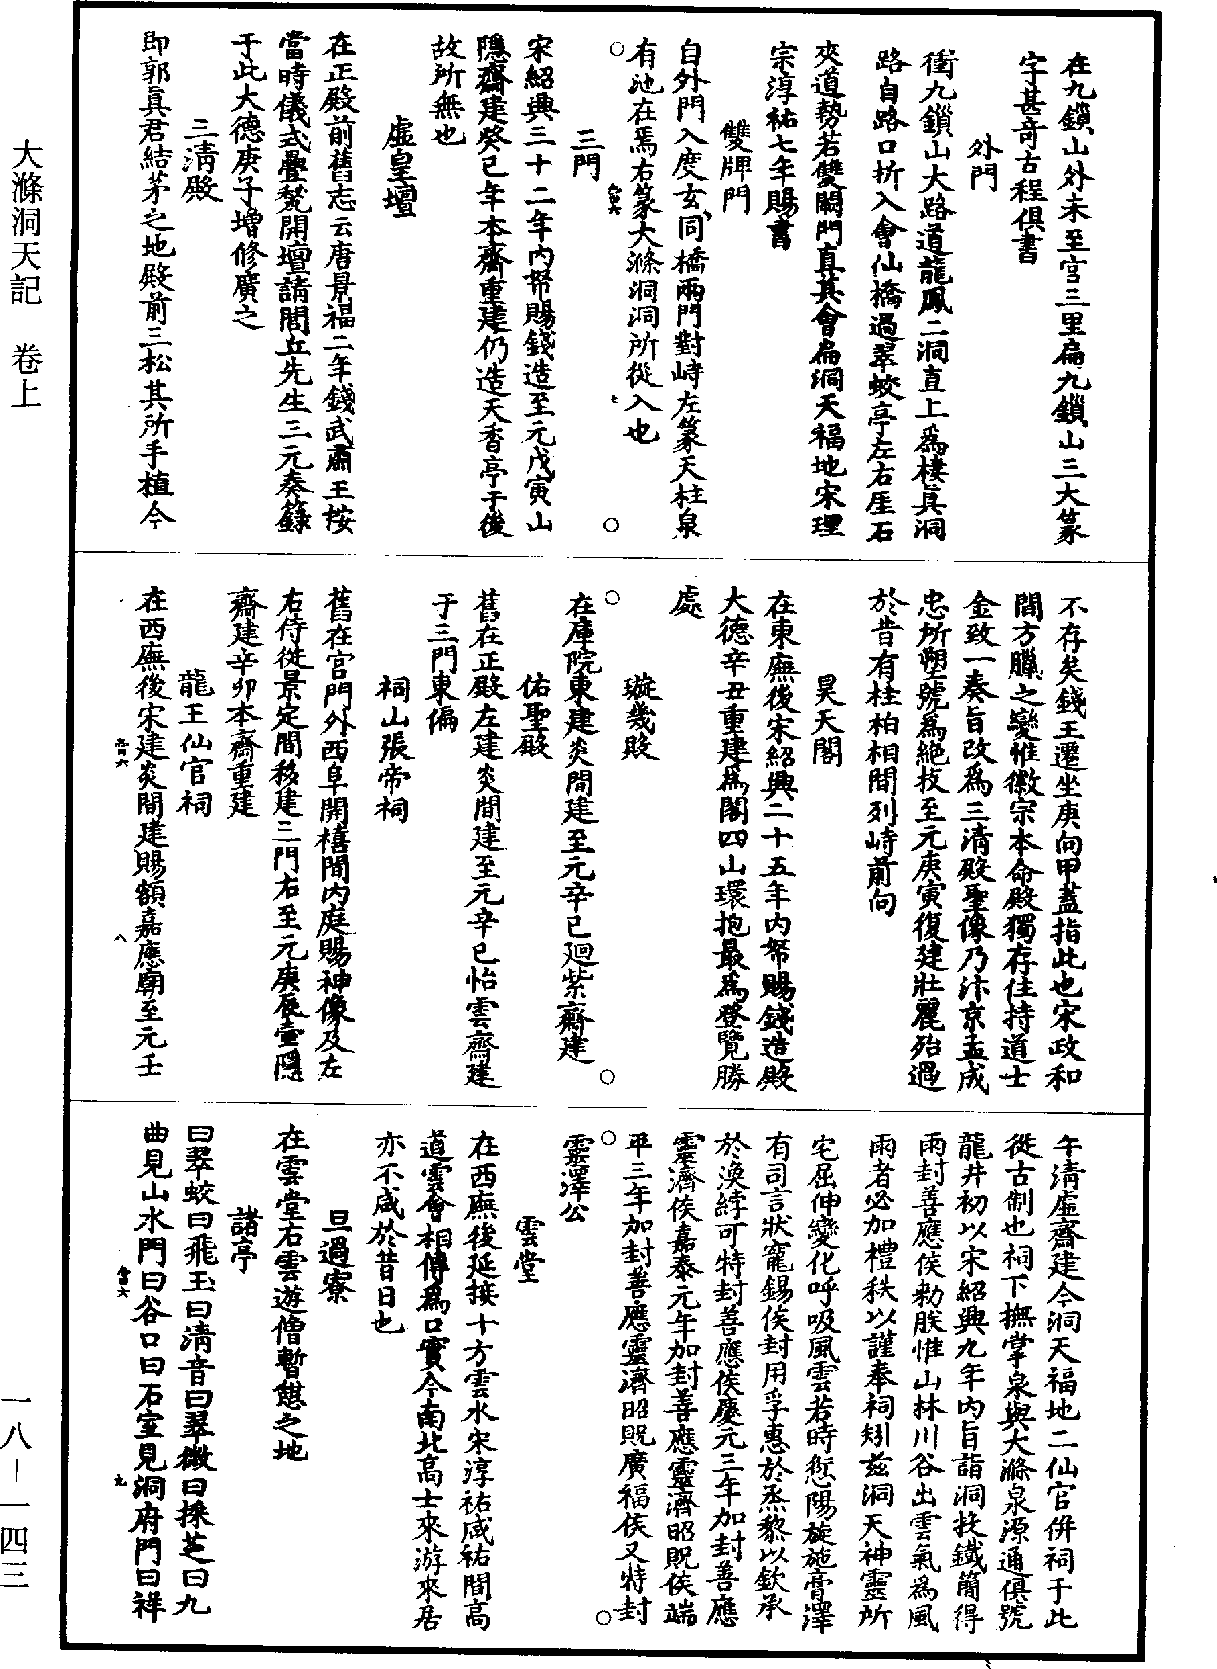 大滌洞天記　卷上
一八－一四三
在九鎖山外未至宮三里扁九鎖山三大篆
字甚奇古程俱書
外門
衝九鎖山大路道龍鳳二洞直上爲棲真洞
路自路口折入會仙橋過翠蛟亭左右厓石
夾道勢若雙闕門真其會扁洞天福地宋理
宗淳祐七年賜書
雙牌門
自外門入度玄同橋兩門對峙左篆天柱泉
有池在焉右篆大滌洞洞所從入也
三門
宋紹興三十二年內帑賜錢造至元戊寅山
隱齋建癸巳年本齋重建仍造天香亭于後
故所無也
虛皇壇
在正殿前舊志云唐景福二年錢武肅王按
當時儀式疊甃開壇請閭丘先生三元奏籙
于此大德庚子增修廣之
三清殿
即郭真君結茅之地殿前三松其所手植今
不存矣錢王遷坐庚向甲蓋指此也宋政和
間方臘之變惟徽宗本命殿獨存住持道士
金致一奏旨改爲三清殿聖像乃汴京孟成
忠所塑號爲絕技至元庚寅復建壯麗殆過
於昔有桂柏相間列峙前向
昊天閣
在東廡後宋紹興二十五年內帑賜錢造殿
大德辛丑重建爲閣四山環抱最爲登覽勝
處
璇璣殿
在庫院東建炎間建至元辛巳迴紫齋建
佑聖殿
舊在正殿左建炎間建至元辛巳怡雲齋建
于三門東偏
祠山張帝祠
舊在宮門外西阜開禧間內庭賜神像及左
右侍從景定間移建三門右至元庚辰壺隱
齋建辛卯本齋重建
龍王仙官祠
在西廡後宋建炎間建賜額嘉應廟至元壬
午清虛齋建今洞天福地二仙官併祠于此
從古制也祠下撫掌泉與大滌泉源通俱號
龍井初以宋紹興九年內旨詣洞投鐵簡得
雨封善應侯勅朕惟山林川谷出雲氣爲風
雨者必加禮秩以謹奉祠矧兹洞天神靈所
宅屈伸變化呼吸風雲若時愆陽旋施膏澤
有司言狀寵錫侯封用孚惠於烝黎以欽承
於渙綍可特封善應侯慶元三年加封善應
靈濟侯嘉泰元年加封善應靈濟昭貺侯端
平三年加封善應靈濟昭貺廣福侯又特封
靈澤公
雲堂
在西廡後延接十方雲水宋淳祐咸祐間高
道雲會相傳爲口實今南北高士來游來居
亦不減於昔日也
旦過寮
在雲堂右雲遊僧暫憇之地
諸亭
曰翠蛟曰飛玉曰清音曰翠微曰採芝曰九
曲見山水門曰谷口曰石室見洞府門曰祥